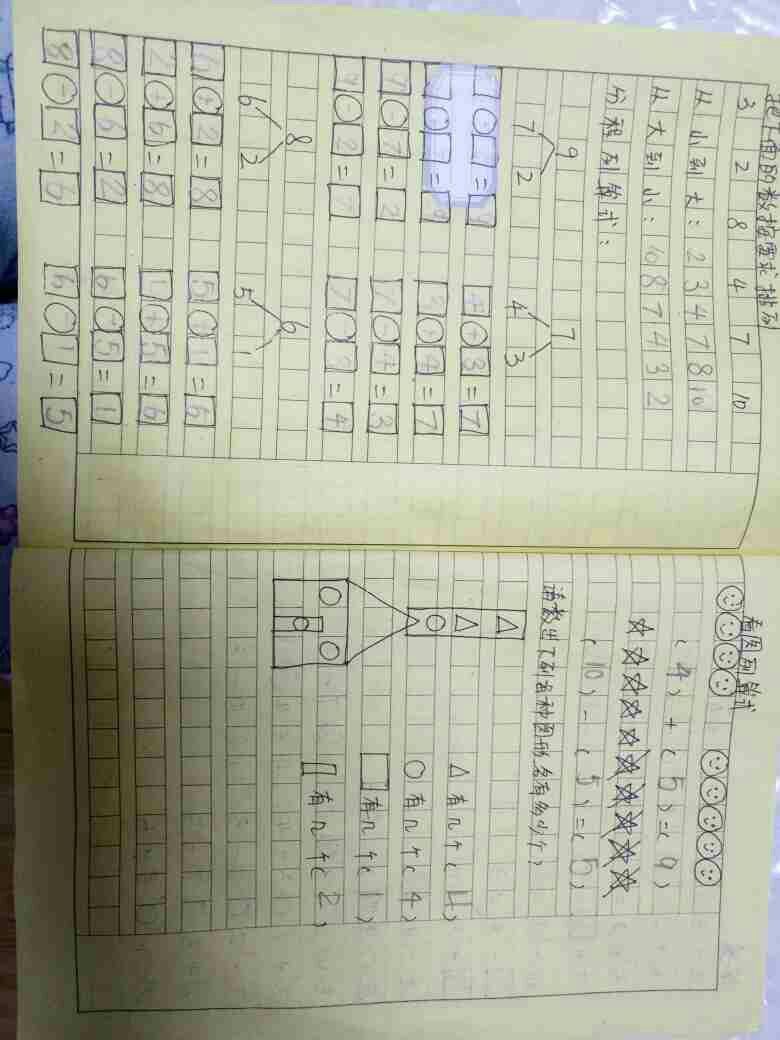 把下面的数按要求排列
3 2 8 4 7 10
从小到大：2 3 4 7 8 10
从大到小：10 8 7 4 3 2
列算式：
9 7
7 2 4 3
= 9 4+3=7
= 9 3+4=7
9-7=2 7-4=3
9-2=7 7-3=4
8 6
6 2 5 1
6+2=8 5+1=6
2+6=8 1+5=6
8-6=2 6-5=1
8-2=6 6-1=5
看图列算式
(4)+(5)=(9)
(10)-(5)=(5)
请数出下列各种图形各有多少个？
△有几个(4)
○有几个(4)
□有几个(1)
▭有几个(2)